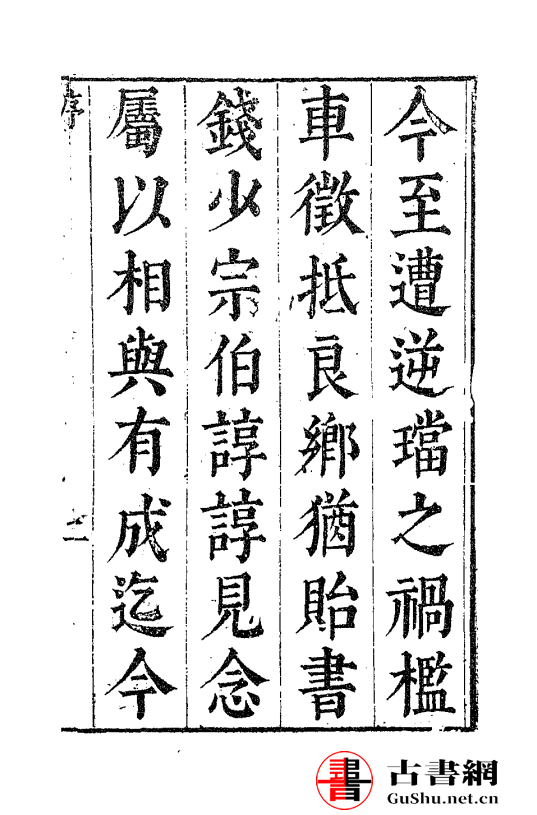 今至遭逆璫之禍檻
車徵抵良鄉猶貽書
錢少宗伯諄諄見念
屬以相與有成迄今
序
二
書
古書網
GuShu.net.cn